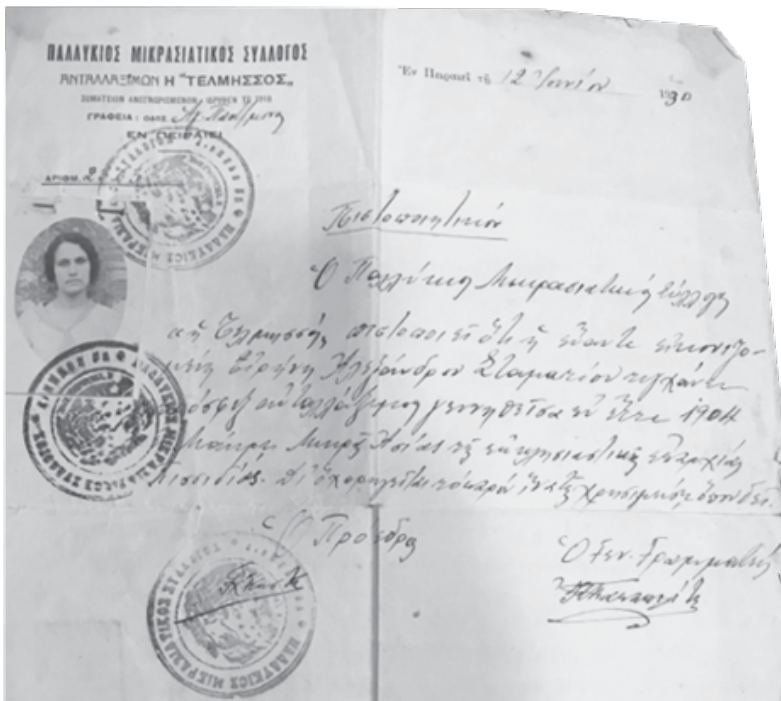 ΠΑΛΛΥΚΙΟΣ ΜΙΚΡΑΣΙΑΤΙΚΟΣ ΣΥΛΛΟΓΟΣ
ΑΝΤΑΛΛΑΞΙΜΩΝ Η "ΤΕΛΜΗΣΣΟΣ"
ΣΩΜΑΤΕΙΟΝ ΑΝΕΓΝΩΡΙΣΜΕΝΟΝ
ΓΡΑΦΕΙΑ: ΟΔΟΣ
ΕΝ ΠΕΙΡΑΙΕΙ
ΑΡΙΘ.
Ἐν Πειραιεῖ τῇ 12 Ἰουνίου 1930
Πιστοποιητικόν
Ὁ Παλλύκιος Μικρασιατικός Σύλλογος
ἡ Τελμησσός πιστοποιεῖ ὅτι ἡ εἰκονιζο-
Εἰρήνη Ἀλεξάνδρου Σταματίου τυγχάνει
πρόσφυξ ἀνταλλάξιμος γεννηθεῖσα ἐν ἔτει 1904
Μάκρη Μικρᾶς Ἀσίας τῆς ἐκκλησιαστικῆς ἐπαρχίας
Πισιδίας. Δι' ὃ χορηγεῖται τὸ παρόν ἵνα χρησιμεύσῃ ὅπου δεῖ.
Ὁ Πρόεδρος
Ὁ Γεν. Γραμματεύς
ΠΑΛΛΥΚΙΟΣ ΜΙΚΡΑΣΙΑΤΙΚΟΣ ΣΥΛΛΟΓΟΣ